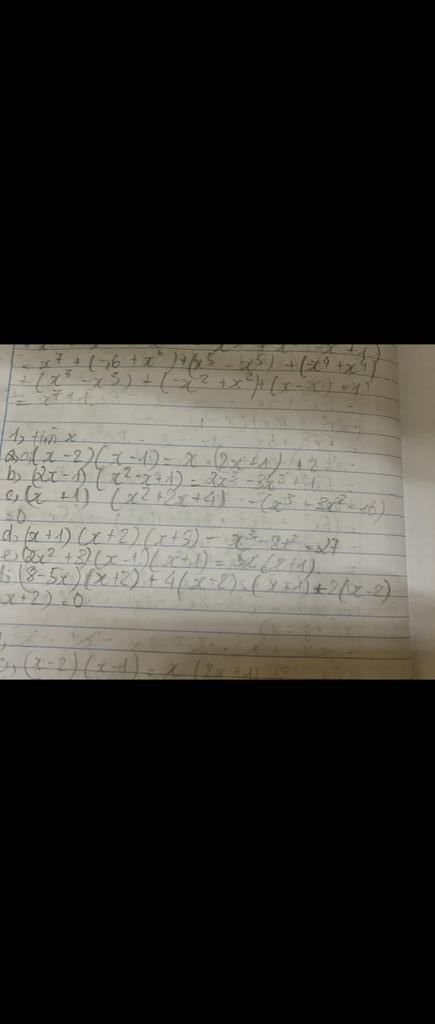 = x⁷ + (-x⁶ + x⁶) + (x⁵ - x⁵) + (-x⁴ + x⁴)
+ (x³ - x³) + (-x² + x²) + (x - x) + 1
= x⁷ + 1.
1, tìm x
a, (x - 2) (x - 1) = x (2x + 1) + 2
b, (2x - 1) (x² - x + 1) = 2x³ - 3x² +
c, (x + 1) (x² + 2x + 4) - (x³ + 3x² - 16)
= 0
d, (x + 1) (x + 2) (x + 5) - x³ - 8x² = 27
e, (2x² + 3) (x - 1) (x + 1) = 5x (x + 1)
(8 - 5x) (x + 2) + 4 (x - 2) (x + 1) + 2 (x - 2)
x + 2) = 0
(x - 2) (x - 1) = x (2x + 1)